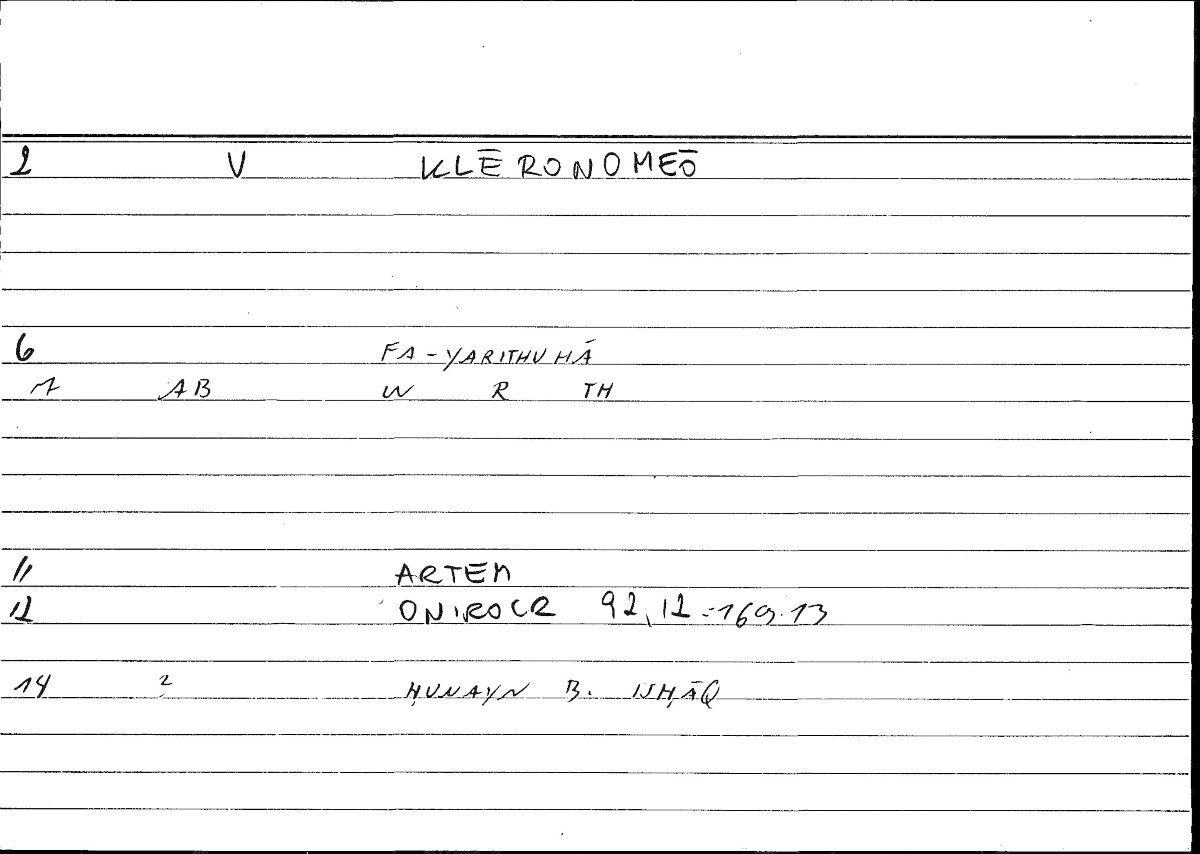 2 V KLĒRONOMEŌ
6 FA-YARITHUHĀ
1 AB W R TH
11 ARTEM
12 ONIROCR 92,12-169.13
14 2 ḤUNAYN B. ISḤĀQ